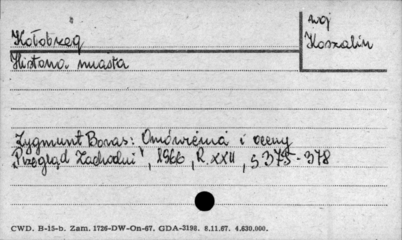 woj
Kołobrzeg
Koszalin
Historia miasta
Zygmunt Boras: Omówienia i oceny
"Przegląd Zachodni", 1966, R. XXII, s. 375-378
CWD. B-15-b. Zam. 1726-DW-On-67. GDA-2198. 8.11.67. 4.630.000.